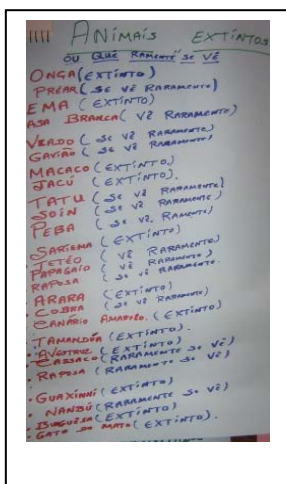 ANIMAIS EXTINTOS
OU QUE RAMENTE SE VÊ
ONGA (EXTINTO)
PREAR (SE VÊ RARAMENTO)
EMA (EXTINTO)
ASA BRANCA (VÊ RARAMENTO)
VEADO (SE VÊ RARAMENTO)
GAVIÃO (SE VÊ RARAMENTO)
MACACO (EXTINTO)
JACÚ (EXTINTO).
TATU (SE VÊ RARAMENTE)
SOIN (SE VÊ RARAMENTE)
PEBA (SE VÊ RAMENTO)
SARIEMA (EXTINTO)
TETÉO (VÊ RARAMENTO)
PAPAGAIO (VÊ RARAMENTO)
RAPOSA (SE VÊ RARAMENTO.
ARARA (EXTINTO)
• COBRA (SE VÊ RARAMENTO)
CANÁRIO AMARELO. (EXTINTO)
• TAMANDÚA (EXTINTO).
• AVESTRUZ (EXTINTO)
• CASSACO (RARAMENTE SE VÊ)
• RAPOSA (RARAMENTE SE VÊ)
• GUAXINHÍ (EXTINTO)
• NANBÚ (RARAMENTE SE VÊ)
• (EXTINTO)
• GATO DO MATO (EXTINTO).